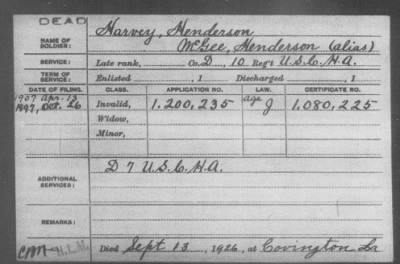 DEAD
NAME OF SOLDIER: Harvey, Henderson
McGee, Henderson (alias)
SERVICE: Late rank, Co. D, 10 Reg't U.S.C.H.A.
TERM OF SERVICE: Enlisted , 1 Discharged , 1
DATE OF FILING. CLASS. APPLICATION NO. LAW. CERTIFICATE NO.
1907 Apr. 13
1897, Oct. 26 Invalid, 1.200,235 age J 1,080,225
Widow,
Minor,
ADDITIONAL SERVICES: D 7 U.S.C.H.A.
REMARKS:
Died Sept 13, 1926, at Covington La